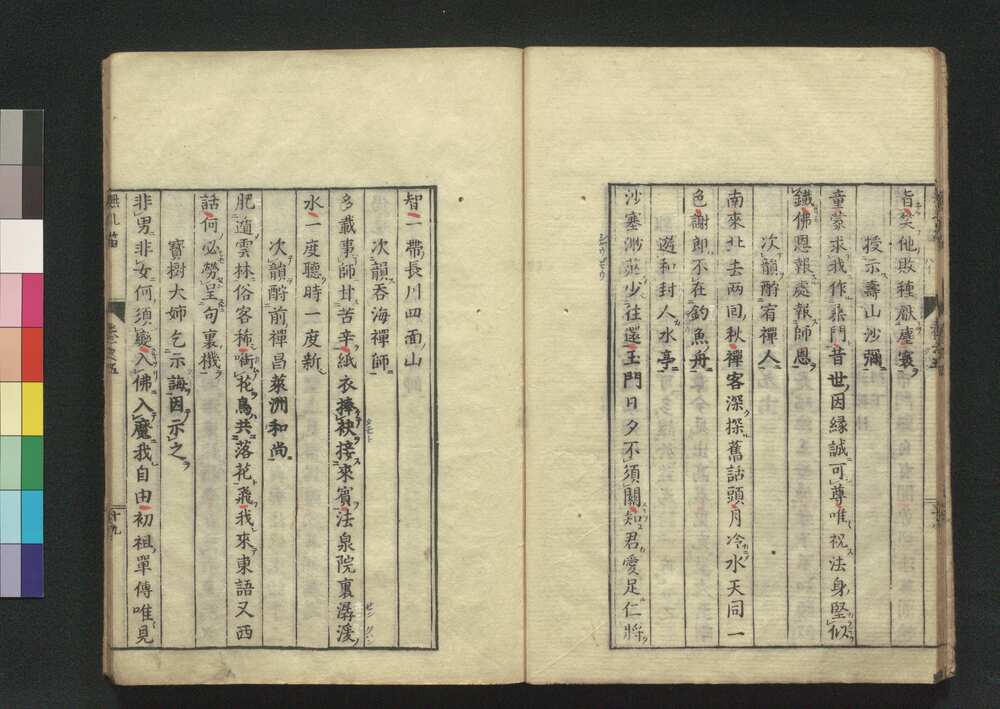 皆笑他敗種獻塵裏
授示壽山沙彌
童蒙求我作桑門昔世因緣誠可尊唯祝法身堅似
鐵佛恩報處報師恩
次韻酧宥禪人
南來北去兩回秋禪客深探舊話頭月冷水天同一
色謝郎不在釣魚舟
遊和封人水亭
沙塞渺茫少往還王門日夕不須關知君愛足仁將
智一帶長川四面山
次韻呑海禪師
多載事師甘苦辛紙衣捧袂接來賓法泉院裏潺湲
水一度聽時一度新
次韻酧前禪昌萊洲和尚
肥遁雲林俗客稀啣花鳥共落花飛我來東語又西
話何必勞呈句裏機
寶樹大姉乞示誨因示之
非男非女何須入佛入魔我自由初祖單傳唯見